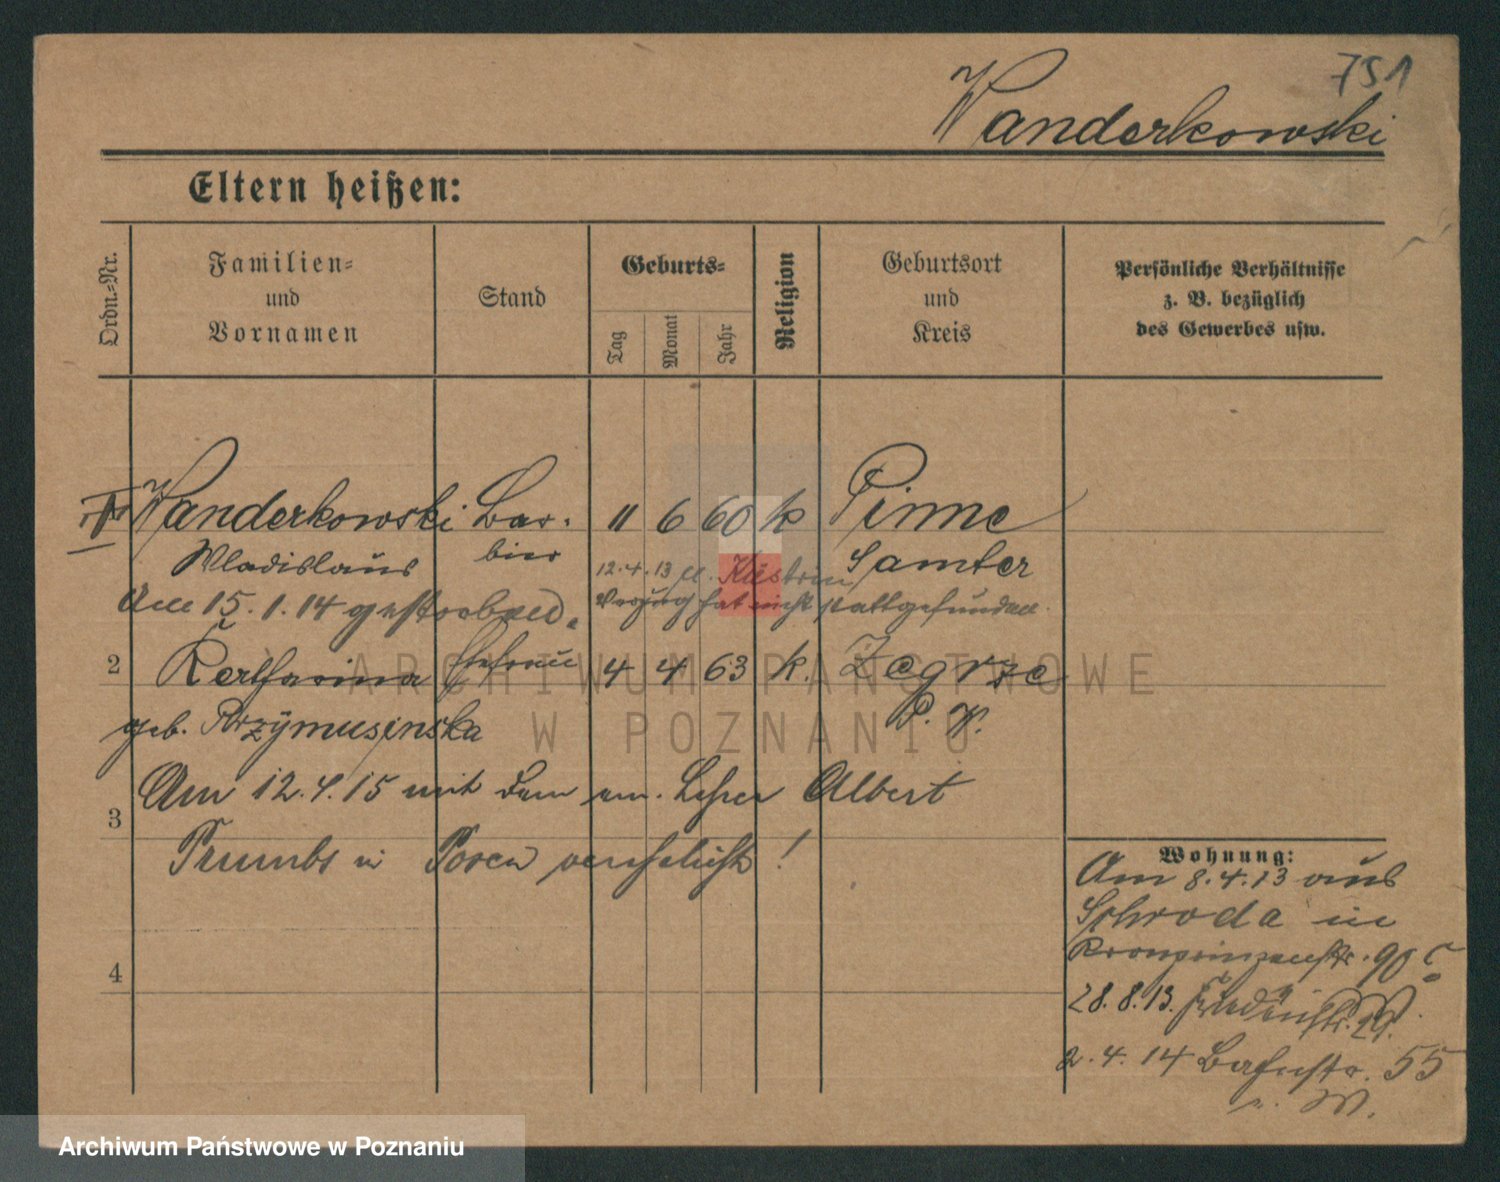 751
Wanderkowski
Eltern heißen:
Ordn.-Nr.
Familien-
und
Vornamen
Stand
Geburts-
Tag
Monat
Jahr
Religion
Geburtsort
und
Kreis
Persönliche Verhältnisse
z. B. bezüglich
des Gewerbes usw.
Wanderkowski Bar- 11 6 60 k Pinne
Wladislaus bier Samter
12.4.13 n. Küstrin
Am 15.1.14 gestorben.
Verzug hat nicht stattgefunden.
2 Katharina Ehefrau 4 4 63 k. Zegrze
geb. Przymusinska P. W.
Am 12.4.15 mit dem em. Lehrer Albert
3
Prumbs in Posen verehelicht!
4
Wohnung:
Am 8.4.13 aus
Schroda in
Kronprinzenstr. 90
28.8.13.
2.4.14 Bahnstr. 55
W.
ARCHIWUM PAŃSTWOWE
W POZNANIU
Archiwum Państwowe w Poznaniu